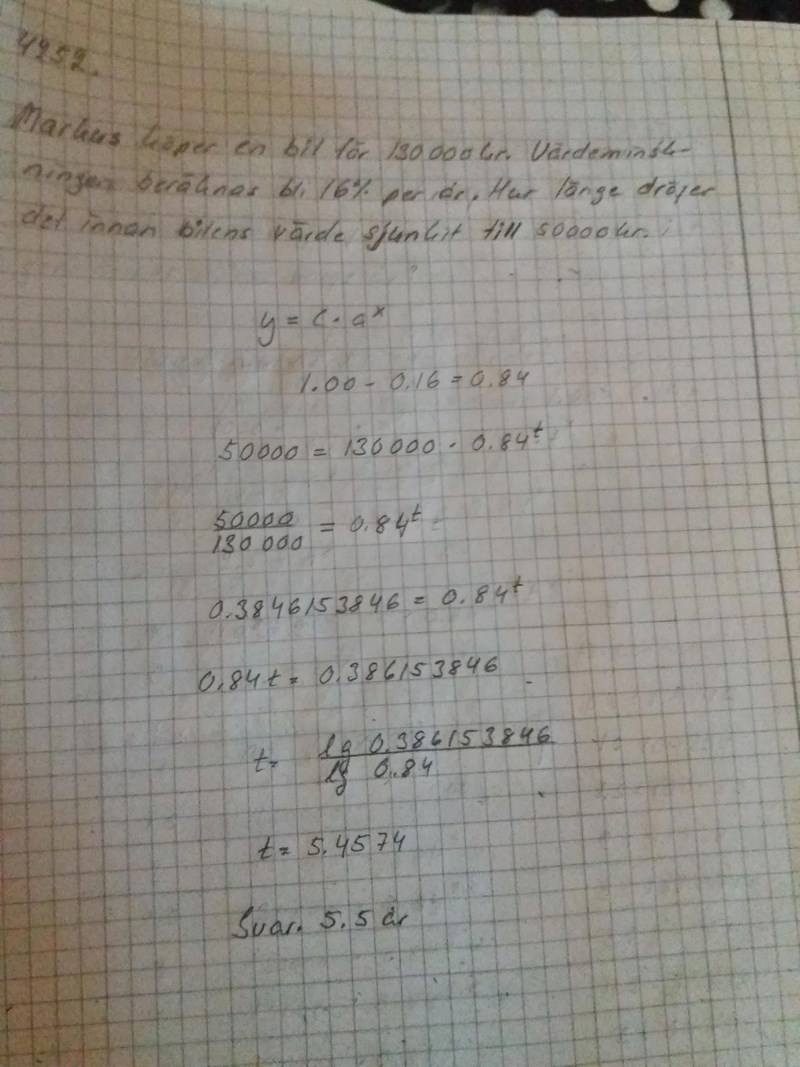 4252.
Markus köper en bil för 130000kr. Värdeminsk-
ningen beräknas bl. 16% per år. Hur länge dröjer
det innan bilens värde sjunkit till 50000kr.
y = C · a^x
1.00 - 0.16 = 0.84
50000 = 130000 · 0.84^t
50000
130 000 = 0.84^t
0.3846153846 = 0.84^t
0.84t = 0.386153846
t = lg 0.386153846
lg 0.84
t = 5.4574
Svar. 5.5 år